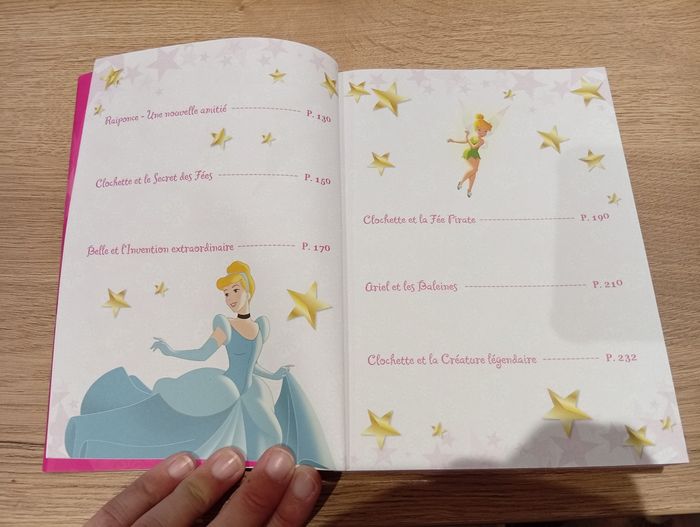 Raiponce - Une nouvelle amitié ---------------- P. 130
Clochette et le Secret des Fées ------------------ P. 150
Belle et l'Invention extraordinaire -------------- P. 170
Clochette et la Fée Pirate -------------------- P. 190
Ariel et les Baleines ------------------------- P. 210
Clochette et la Créature légendaire ------------ P. 232